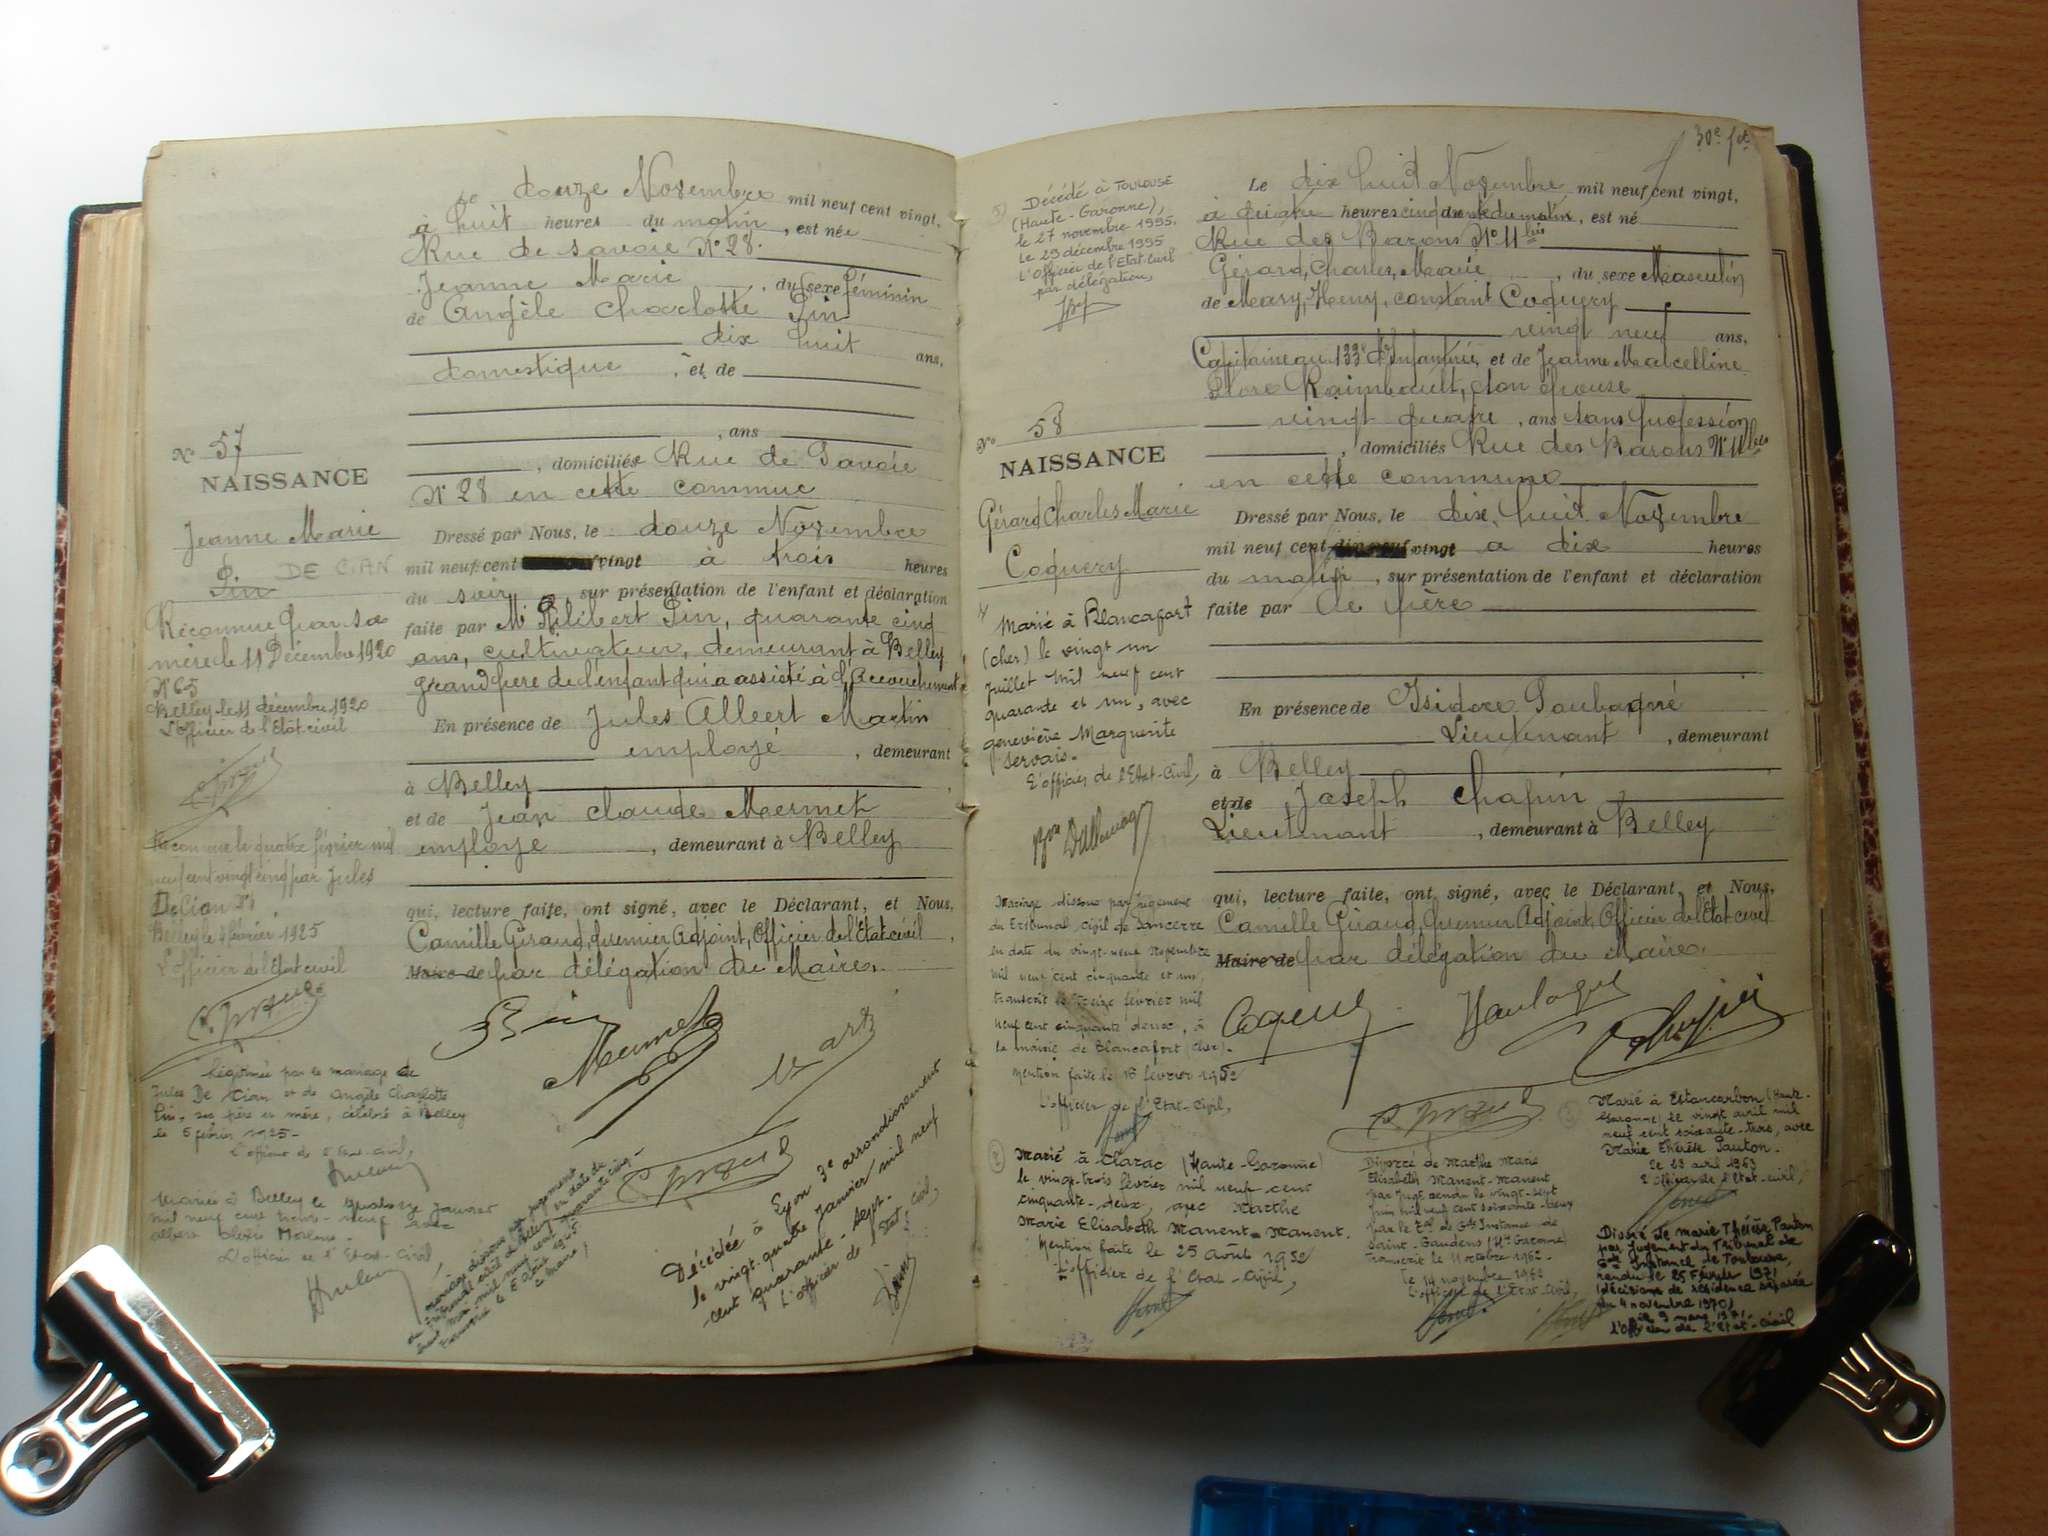 Le douze Novembre mil neuf cent vingt,
à huit heures du matin, est née
Rue de Savoie N° 28.
Jeanne Marie, du sexe féminin
de Angèle Charlotte Pin
dix huit ans,
domestique, et de
, ans
, domiciliés Rue de Savoie
N° 28 en cette commune
N° 57
NAISSANCE
Jeanne Marie
Pin DE CIAN
Reconnue par sa
mère le 11 Décembre 1920
N° 65
Belley le 11 décembre 1920
L'officier de l'Etat civil
Reconnue le quatre février mil
neuf cent vingt cinq par Jules
De Cian
Belley le 4 février 1925
L'officier de l'état civil
Légitimée par le mariage de
Jules De Cian et de Angèle Charlotte
Pin, ses père et mère, célébré à Belley
le 5 février 1925-
L'officier de l'Etat-civil,
Mariée à Belley le quatorze Janvier
mil neuf cent trente-neuf avec
L'officier de l'Etat-Civil,
Dressé par Nous, le douze Novembre
mil neuf cent vingt à trois heures
du soir, sur présentation de l'enfant et déclaration
faite par Mr Philibert Pin, quarante cinq
ans, cultivateur, demeurant à Belley
grand père de l'enfant qui a assisté à l'accouchement
En présence de Jules Albert Martin
employé, demeurant
à Belley,
et de Jean Claude Mermet
employé, demeurant à Belley
qui, lecture faite, ont signé, avec le Déclarant, et Nous,
Camille Giraud, premier Adjoint, Officier de l'Etat civil,
Maire de par délégation du Maire.
Mermet
Décédée à Lyon 3e arrondissement
le vingt-quatre Janvier mil neuf
cent quarante-sept.
L'officier de l'Etat civil,
30e fet
5) Décédé à TOULOUSE
(Haute-Garonne),
le 27 novembre 1995.
Le 29 décembre 1995
L'Officier de l'Etat-Civil
par délégation,
Le dix huit Novembre mil neuf cent vingt,
à quatre heures cinquante du matin, est né
Rue des Barons N° 11 bis
Gérard, Charles, Marie, du sexe Masculin
de Mary, Henry, Constant Coquery
vingt neuf ans,
Capitaine au 133e d'Infanterie, et de Jeanne Marcelline
Flore Raimbault, son épouse
vingt quatre, ans sans profession
, domiciliés Rue des Barons N° 11 bis
en cette commune
N° 58
NAISSANCE
Gérard Charles Marie
Coquery
Marié à Blancafort
(Cher) le vingt un
Juillet mil neuf cent
quarante et un, avec
geneviève Marguerite
Servais.
L'officier de l'Etat-Civil,
Mariage dissous par jugement
du Tribunal Civil de Sancerre
en date du vingt-neuf Novembre
mil neuf cent cinquante et un,
transcrit le treize février mil
neuf cent cinquante deux, à
la mairie de Blancafort (Cher).
Mention faite le 16 février 1952
L'officier de l'Etat-Civil,
Dressé par Nous, le dix huit Novembre
mil neuf cent dix-neuf vingt à dix heures
du matin, sur présentation de l'enfant et déclaration
faite par le père
En présence de Isidore
Lieutenant, demeurant
à Belley
et de Joseph Chapin
Lieutenant, demeurant à Belley
qui, lecture faite, ont signé, avec le Déclarant, et Nous,
Camille Giraud, premier Adjoint, Officier de l'Etat civil
Maire de par délégation du Maire.
Coquery
2) Marié à Clarac (Haute-Garonne)
le vingt-trois février mil neuf cent
cinquante-deux, avec Marthe
Marie Elisabeth Manent-Manent.
Mention faite le 25 août 1952
L'officier de l'Etat-Civil,
Divorcé de Marthe Marie
Elisabeth Manent-Manent
par jugt rendu le vingt-sept
juin mil neuf cent soixante-deux
par le Tal de Gde Instance de
Saint-Gaudens (Hte Garonne)
Transcrit le 11 octobre 1962.
le 14 novembre 1962
L'officier de l'Etat Civil,
3) Marié à Estancarbon (Haute-
Garonne) le vingt avril mil
neuf cent soixante-trois, avec
Marie Thérèse Pauton.
le 23 avril 1963
L'Officier de l'Etat-civil,
Divorcé de Marie Thérèse Pauton
par Jugement du Tribunal de
Gde Instance de Toulouse,
rendu le 25 Février 1971
(décisions de résidence séparée
du 4 novembre 1970)
le 9 mars 1971.
L'Officier de l'Etat-Civil